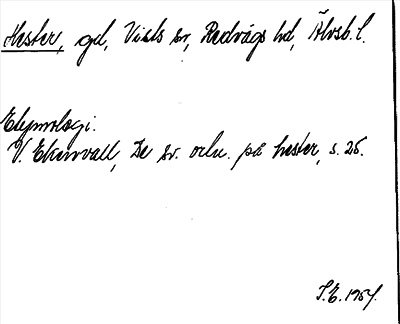 Hester, gd, Vists sn, Redvägs hd, Älvsb. l.
Etymologi.
V. Ekenvall, De sv. ortn. på hester, s. 25.
S.E. 1954.